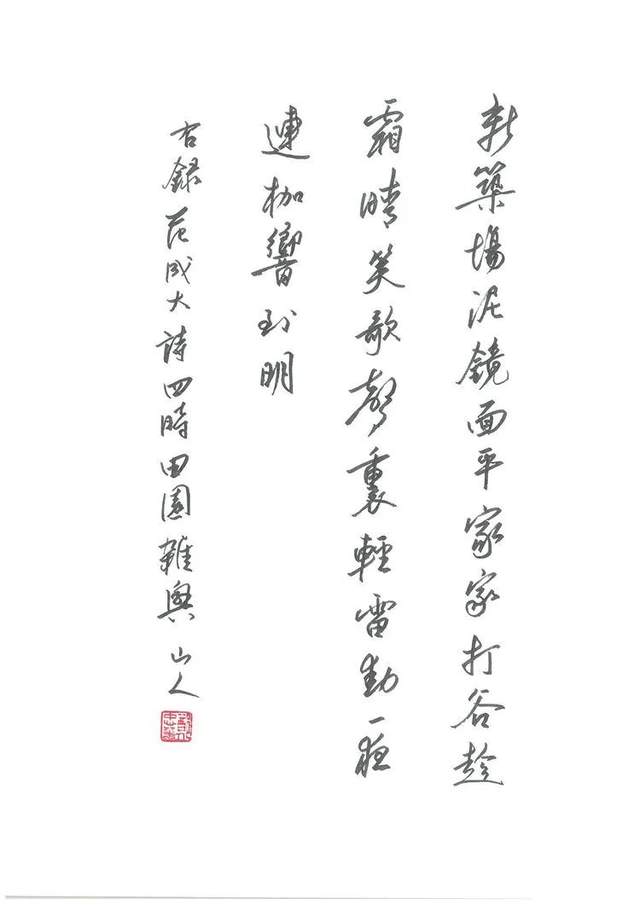 新築場泥鏡面平家家打谷趁
霜晴笑歌聲裏輕雷動一夜
連枷響到明
右録范成大詩四時田園雜興山人